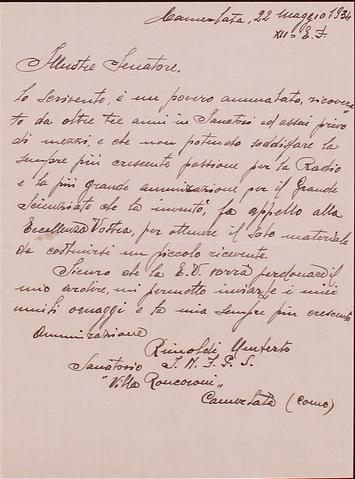 Camerlata, 22 Maggio 1934
XII° E. F.
Illustre Senatore,
Lo scrivente, è un povero ammalato, ricovera=
to da oltre tre anni in Sanatori ed assai privo
di mezzi, e che non potendo soddisfare la
sempre più crescente passione per la Radio
e la più grande ammirazione per il Grande
Scienziato che la inventò, fa appello alla
Eccellenza Vostra, per ottenere il solo materiale
da costruirsi un piccolo ricevente.
Sicuro che la E.V. vorrà perdonare il
mio ardire, mi permetto inviarle i miei
umili omaggi e la mia sempre più crescente
ammirazione
Rimoldi Umberto
Sanatorio I. N. F. P. S.
"Villa Roncoroni"
Camerlata (Como)